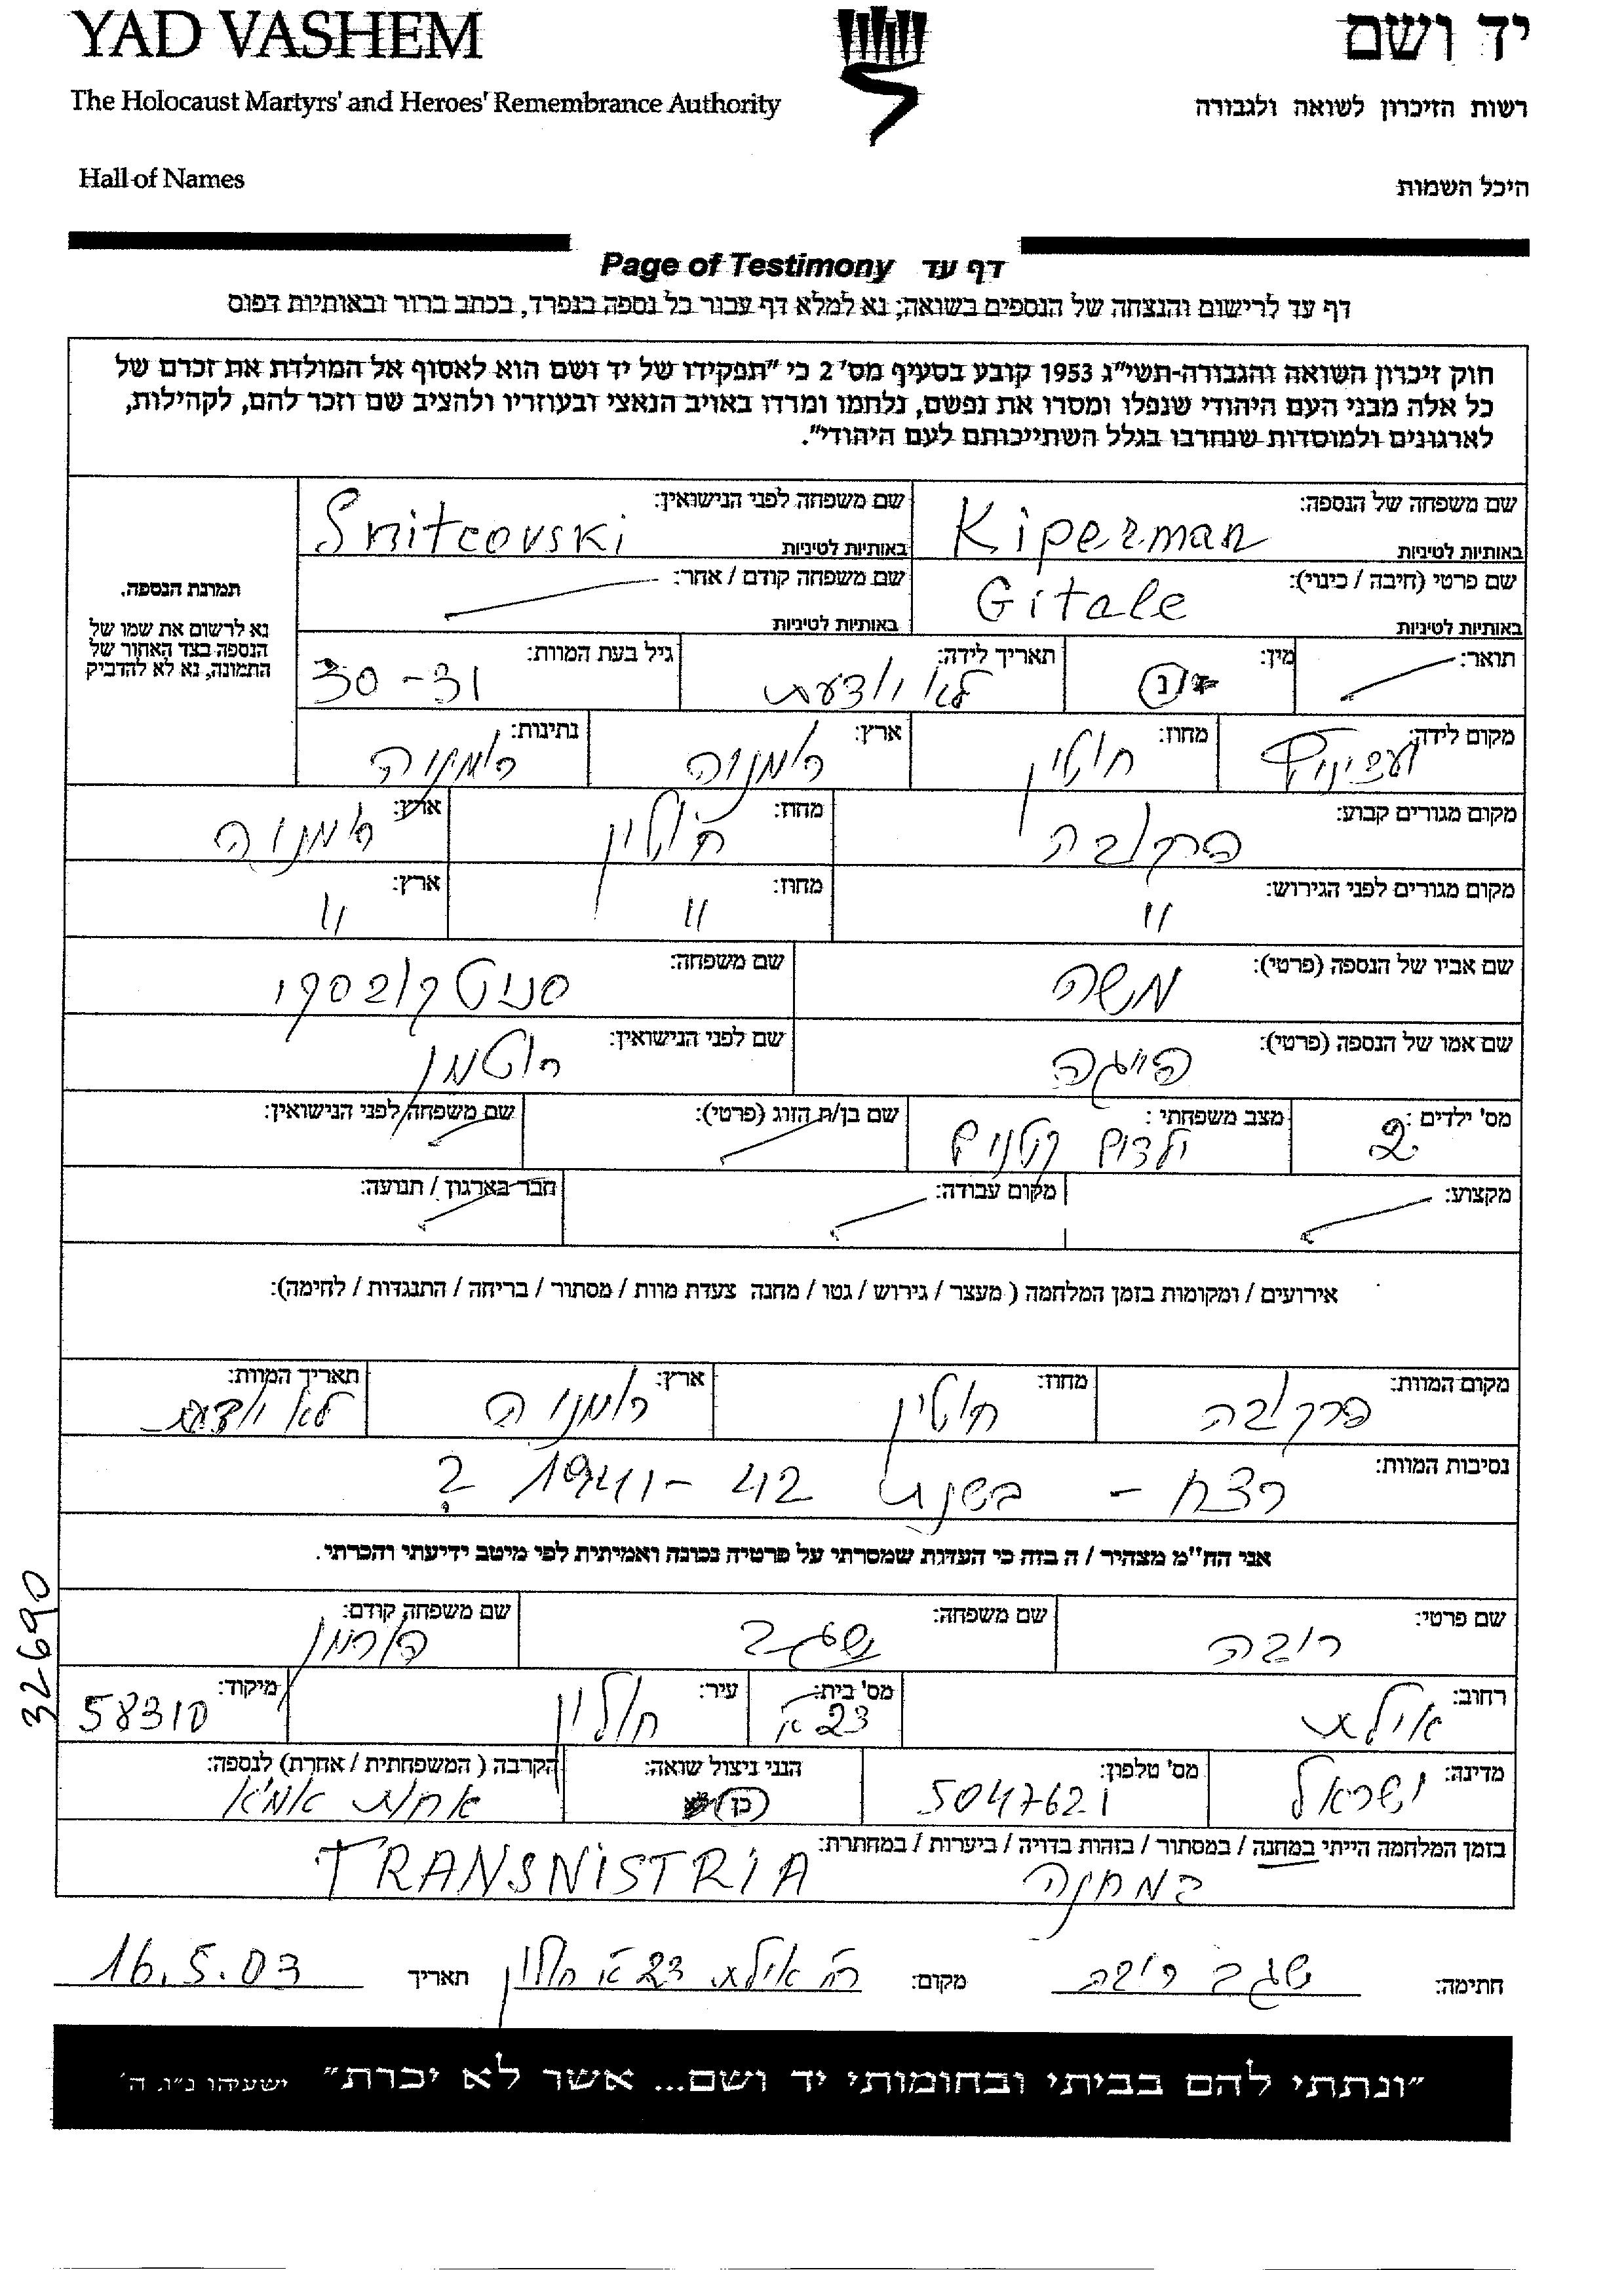 YAD VASHEM
יד ושם
The Holocaust Martyrs' and Heroes' Remembrance Authority
רשות הזיכרון לשואה ולגבורה
Hall of Names
היכל השמות
Page of Testimony דף עד
דף עד לרישום והנצחה של הנספים בשואה; נא למלא דף עבור כל נספה בנפרד, בכתב ברור ובאותיות דפוס
חוק זיכרון השואה והגבורה-תשי"ג 1953 קובע בסעיף מס' 2 כי "תפקידו של יד ושם הוא לאסוף אל המולדת את זכרם של
כל אלה מבני העם היהודי שנפלו ומסרו את נפשם, נלחמו ומרדו באויב הנאצי ובעוזריו ולהציב שם וזכר להם, לקהילות,
לארגונים ולמוסדות שנחרבו בגלל השתייכותם לעם היהודי".
שם משפחה של הנספה: Kiperman באותיות לטיניות
שם משפחה לפני הנישואין: Snitcovski באותיות לטיניות
שם פרטי (חיבה / כינוי): Gitale באותיות לטיניות
שם משפחה קודם / אחר: באותיות לטיניות
תמונת הנספה.
נא לרשום את שמו של
הנספה בצד האחור של
התמונה, נא לא להדביק
תואר:
מין: ז/נ
תאריך לידה: לא יודעת
גיל בעת המוות: 30-31
מקום לידה:
מחוז: חוטין
ארץ: רומניה
נתינות: רומניה
מקום מגורים קבוע: פרקובה
מחוז: חוטין
ארץ: רומניה
מקום מגורים לפני הגירוש: "
מחוז: "
ארץ: "
שם אביו של הנספה (פרטי): משה
שם משפחה: סניטקובסקי
שם אמו של הנספה (פרטי): פייגה
שם לפני הנישואין: רוטמן
מס' ילדים: 2
מצב משפחתי: ילדים קטנים
שם בן/ת הזוג (פרטי):
שם משפחה לפני הנישואין:
מקצוע:
מקום עבודה:
חבר בארגון / תנועה:
אירועים / ומקומות בזמן המלחמה ( מעצר / גירוש / גטו / מחנה צעדת מוות / מסתור / בריחה / התנגדות / לחימה):
מקום המוות: פרקובה
מחוז: חוטין
ארץ: רומניה
תאריך המוות: לא יודעת
נסיבות המוות: רצח - בשנת 1941-42 ?
אני הח"מ מצהיר / ה בזה כי העדות שמסרתי על פרטיה נכונה ואמיתית לפי מיטב ידיעתי והכרתי.
שם פרטי: רובה
שם משפחה: שגב
שם משפחה קודם: פורמן
רחוב: אילת
מס' בית: 23א
עיר: חולון
מיקוד: 58310
מדינה: ישראל
מס' טלפון: 5047621
הנני ניצול שואה: כן
הקרבה ( המשפחתית / אחרת) לנספה: אחות אמא
בזמן המלחמה הייתי במחנה / במסתור / בזהות בדויה / ביערות / במחתרת:
במחנה TRANSNISTRIA
חתימה: שגב רובה מקום: רח אילת 23א חולון תאריך 16.5.03
"ונתתי להם בביתי ובחומותי יד ושם... אשר לא יכרת" ישעיהו נ"ו, ה'
32690